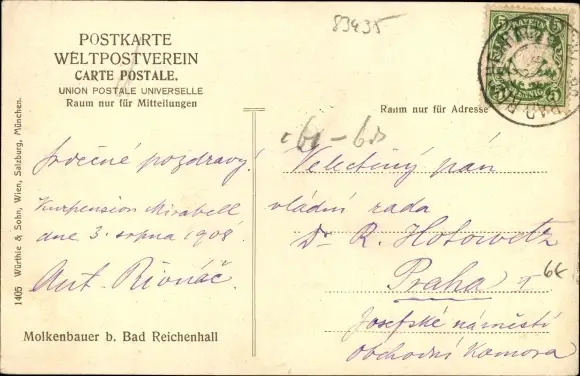 83435
POSTKARTE
WELTPOSTVEREIN
CARTE POSTALE.
UNION POSTALE UNIVERSELLE
Raum nur für Mitteilungen
Raum nur für Adresse
5 BAYERN 5
BAD REICHENHALL
Srdečné pozdravy!
Kurpension Mirabell
dne 3. srpna 1908.
Ant. Rivnáč.
Velectěný pán
vládní rada
Dr R. Hotowetz
Praha
Josefské náměstí
Obchodní Komora
1405 Würthle & Sohn, Wien, Salzburg, München.
Molkenbauer b. Bad Reichenhall